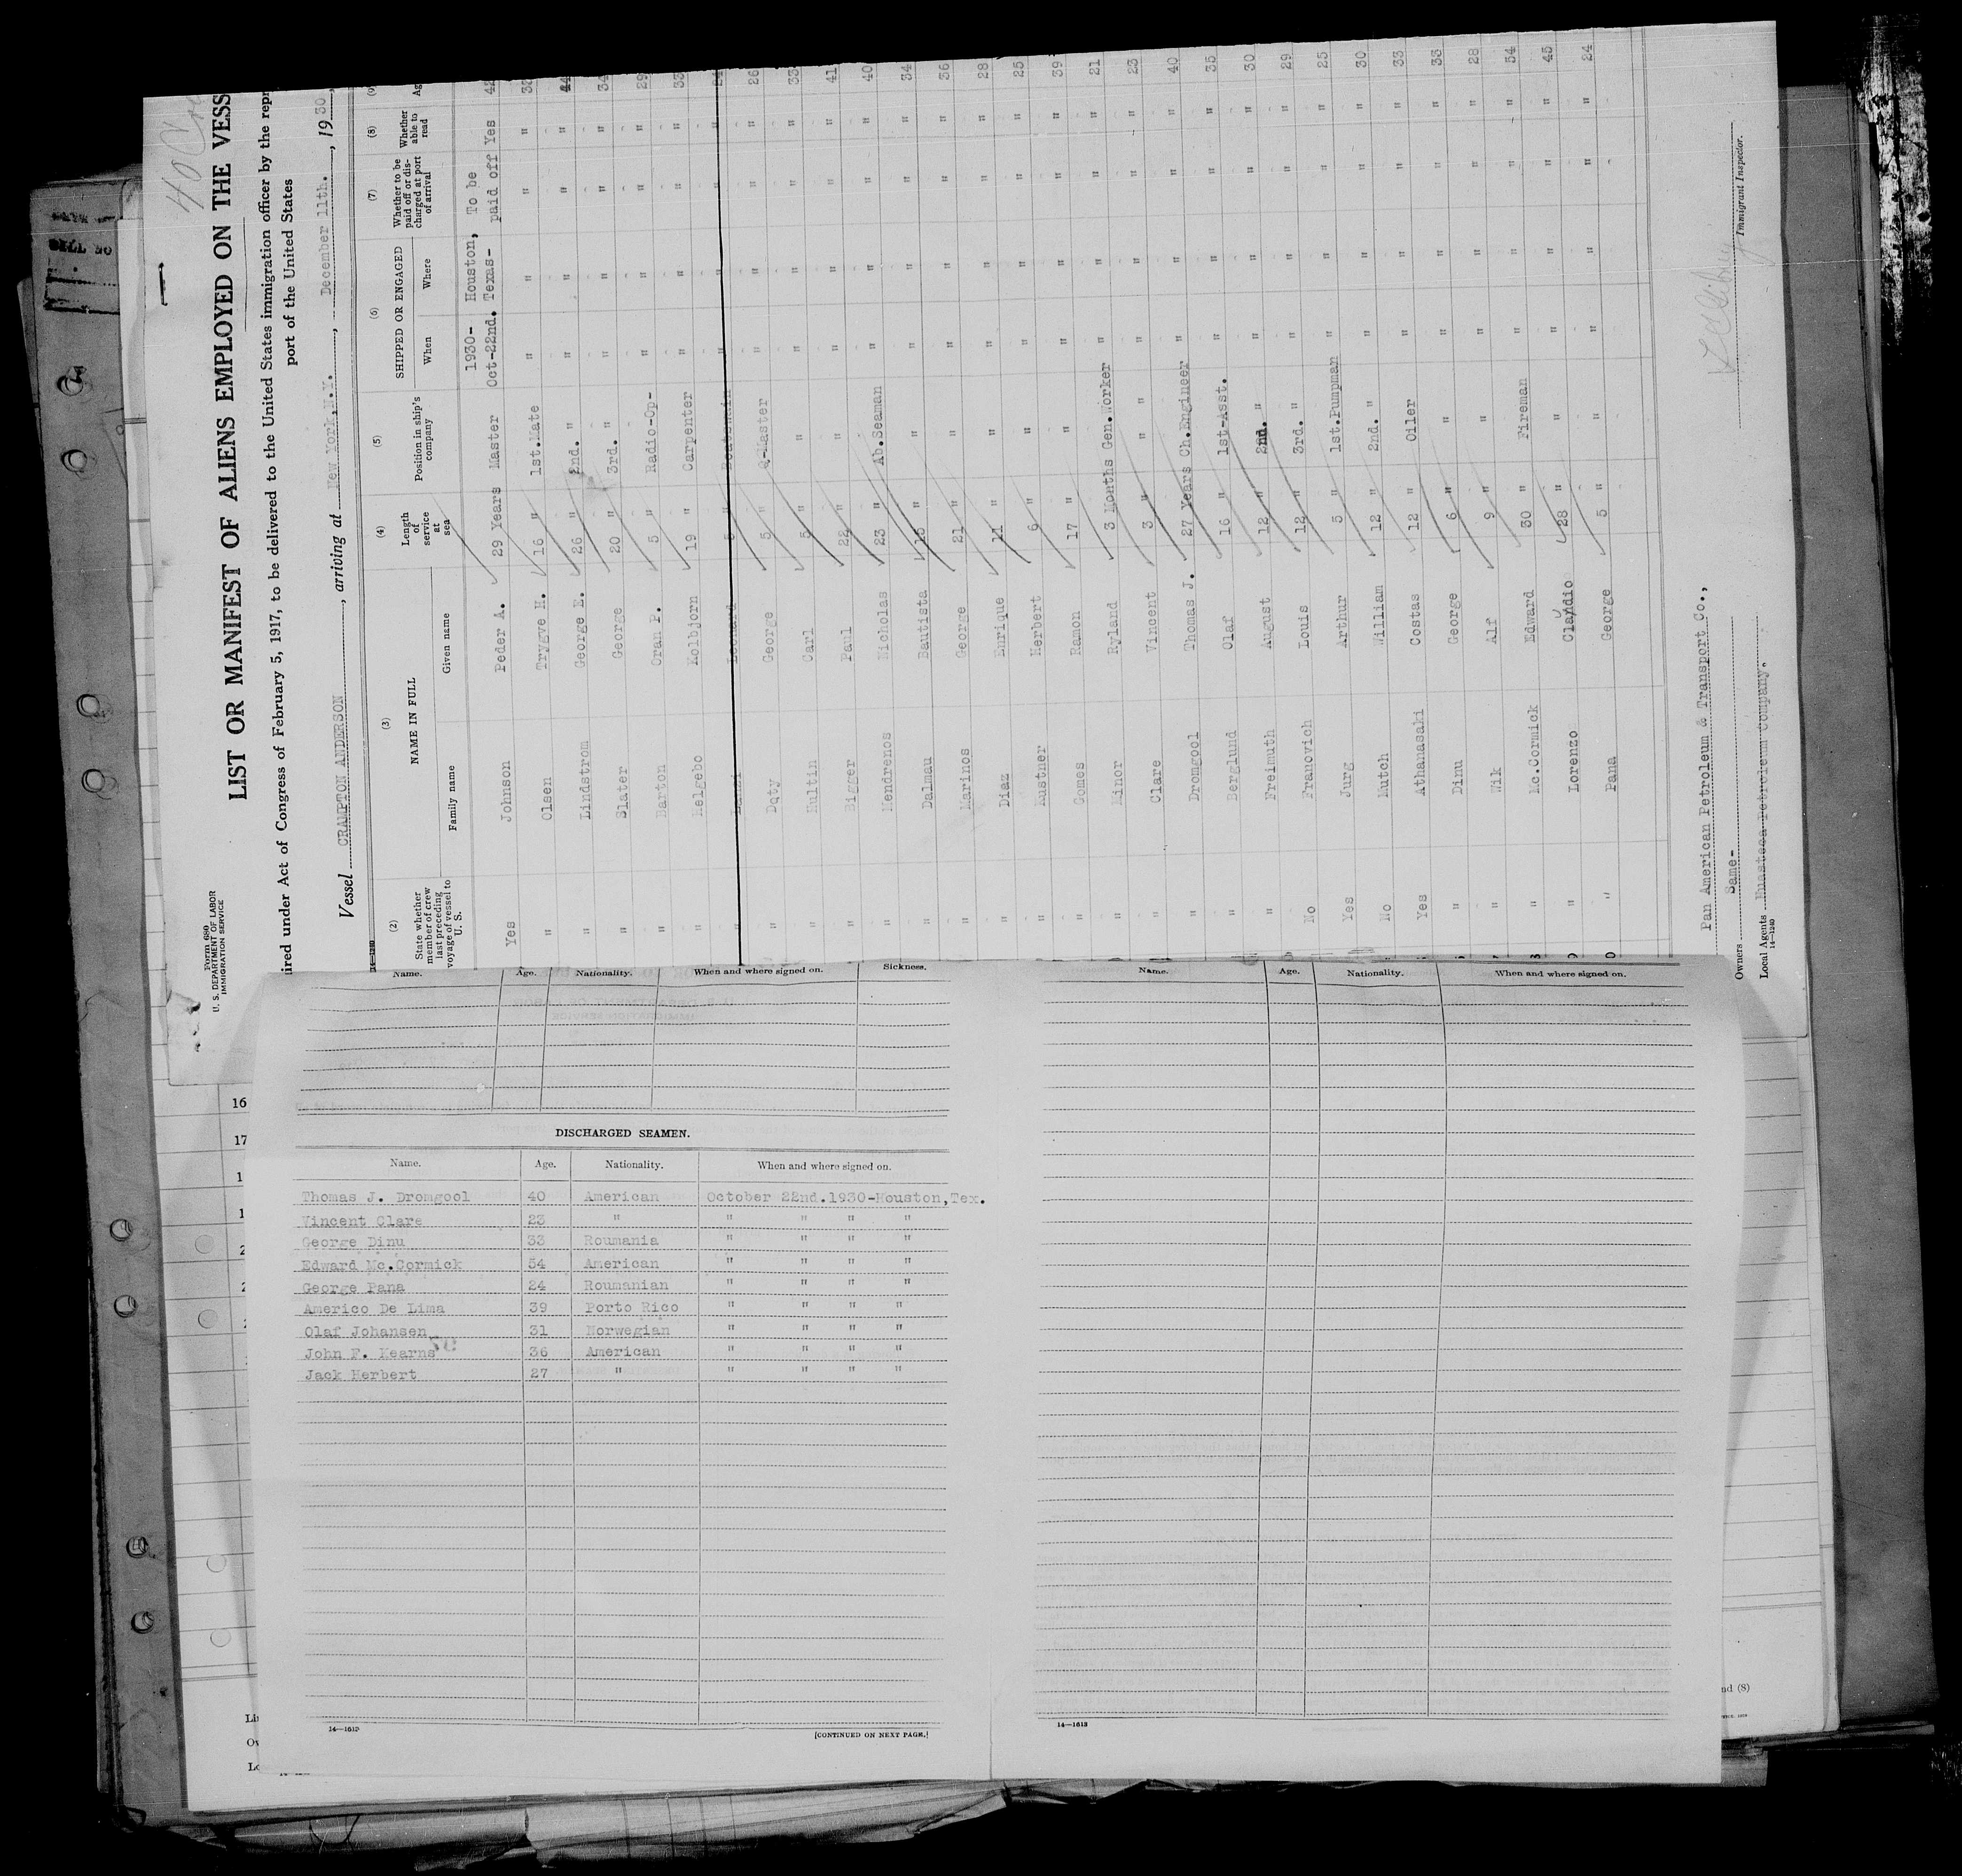 40
Form 680
U. S. DEPARTMENT OF LABOR
IMMIGRATION SERVICE
LIST OR MANIFEST OF ALIENS EMPLOYED ON THE VESS
ired under Act of Congress of February 5, 1917, to be delivered to the United States immigration officer by the repr
port of the United States
Vessel CRAMPTON ANDERSON, arriving at New York, N.Y., December 11th., 1930,
14-1240
(2) (3) (4) (5) (6) (7) (8) (9
State whether member of crew last preceding voyage of vessel to U. S. NAME IN FULL Length of service at sea Position in ship's company SHIPPED OR ENGAGED Whether to be paid off or discharged at port of arrival Whether able to read Ag
Family name Given name When Where
1930- Houston, To be
Yes Johnson Peder A. 29 Years Master Oct-22nd. Texas- paid off Yes 42
" Olsen Trygve H. 16 " 1st.Mate " " " " 30
" Lindstrom George E. 26 " 2nd. " " " " " 44
" Slater George 20 " 3rd. " " " " " 34
" Barton Oran P. 5 " Radio-Op- " " " " 29
" Helgebo Kolbjorn 19 " Carpenter " " " " 33
" Leonard 5 " Boatswain " " " " 24
" Doty George 5 " Q-Master " " " " 26
" Hultin Carl 5 " " " " " " 33
" Bigger Paul 22 " " " " " " 41
" Hendrenos Nicholas 23 " Ab.Seaman " " " " 40
" Dalmau Bautista 15 " " " " " " 34
" Marinos George 21 " " " " " " 36
" Diaz Enrique 11 " " " " " " 28
" Kustner Herbert 6 " " " " " " 25
" Gomes Ramon 17 " " " " " " 39
" Minor Ryland 3 Months Gen.Worker " " " " 21
" Clare Vincent 3 " " " " " " 23
" Dromgool Thomas J. 27 Years Ch.Engineer " " " " 40
" Berglund Olaf 16 " 1st-Asst. " " " " 35
" Freimuth August 12 " 2nd. " " " " " 30
No Francvich Louis 12 " 3rd. " " " " " 29
Yes Jurg Arthur 5 " 1st.Pumpman " " " " 25
No Mutch William 12 " 2nd. " " " " " 30
Yes Athanasaki Costas 12 " Oiler " " " " 33
" Dinu George 6 " " " " " " 33
" Wik Alf 9 " " " " " " 28
" Mc.Cormick Edward 30 " Fireman " " " " 54
" Lorenzo Claudio 28 " " " " " " 45
" Pana George 5 " " " " " " 24
Pan American Petroleum & Transport Co.,
Owners Same-
Local Agents Huasteca Petroleum Company.
14-1240
Immigrant Inspector.
Name. Age. Nationality. When and where signed on. Sickness.
Name. Age. Nationality. When and where signed on.
16
17
DISCHARGED SEAMEN.
Name. Age. Nationality. When and where signed on.
Thomas J. Dromgool 40 American October 22nd.1930-Houston,Tex.
Vincent Clare 23 " " " " "
George Dinu 33 Roumania " " " "
Edward Mc.Cormick 54 American " " " "
George Pana 24 Roumanian " " " "
Americo De Lima 39 Porto Rico " " " "
Olaf Johansen 31 Norwegian " " " "
John F. Kearns 36 American " " " "
Jack Herbert 27 " " " " "
14—1613
[CONTINUED ON NEXT PAGE.]
14—1613
nd (8)